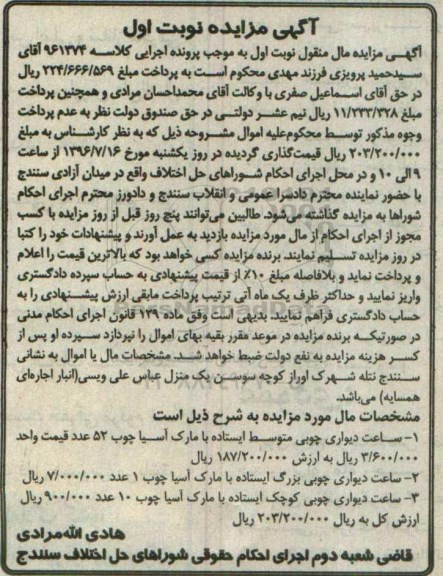 آگهی مزایده نوبت اول
آگهی مزایده مال منقول نوبت اول به موجب پرونده اجرایی کلاسه ۹۶۱۳۷۴ آقای
سیدحمید پرویزی فرزند مهدی محکوم است به پرداخت مبلغ ۲۲۴/۶۶۶/۵۶۹ ریال
در حق آقای اسماعیل صفری با وکالت آقای محمداحسان مرادی و همچنین پرداخت
مبلغ ۱۱/۲۳۳/۳۲۸ ریال نیم عشر دولتی در حق صندوق دولت نظر به عدم پرداخت
وجوه مذکور توسط محکوم‌علیه اموال مشروحه ذیل که به نظر کارشناس به مبلغ
۲۰۳/۲۰۰/۰۰۰ ریال قیمت‌گذاری گردیده در روز یکشنبه مورخ ۱۳۹۶/۷/۱۶ از ساعت
۹ الی ۱۰ و در محل اجرای احکام شوراهای حل اختلاف واقع در میدان آزادی سنندج
با حضور نماینده محترم دادسرا عمومی و انقلاب سنندج و دادورز محترم اجرای احکام
شوراها به مزایده گذاشته می‌شود. طالبین می‌توانند پنج روز قبل از روز مزایده با کسب
مجوز از اجرای احکام از مال مورد مزایده بازدید به عمل آورند و پیشنهادات خود را کتبا
در روز مزایده تسلیم نمایند. برنده مزایده کسی خواهد بود که بالاترین قیمت را اعلام
و پرداخت نماید و بلافاصله مبلغ ۱۰٪ از قیمت پیشنهادی به حساب سپرده دادگستری
واریز نمایید و حداکثر ظرف یک ماه آتی ترتیب پرداخت مابقی ارزش پیشنهادی را به
حساب دادگستری فراهم نمایید. بدیهی است وفق ماده ۱۲۹ قانون اجرای احکام مدنی
در صورتیکه برنده مزایده در موعد مقرر بقیه بهای اموال را نپردازد سپرده او پس از
کسر هزینه مزایده به نفع دولت ضبط خواهد شد. مشخصات مال یا اموال به نشانی
سنندج ننله شهرک اوراز کوچه سوسن یک منزل عباس علی ویسی(انبار اجاره‌ای
همسایه) می‌باشد.
مشخصات مال مورد مزایده به شرح ذیل است
۱- ساعت دیواری چوبی متوسط ایستاده با مارک آسیا چوب ۵۲ عدد قیمت واحد
۳/۶۰۰/۰۰۰ ریال به ارزش ۱۸۷/۲۰۰/۰۰۰ ریال
۲- ساعت دیواری چوبی بزرگ ایستاده با مارک آسیا چوب ۱ عدد ۷/۰۰۰/۰۰۰ ریال
۳- ساعت دیواری چوبی کوچک ایستاده با مارک آسیا چوب ۱۰ عدد ۹۰۰/۰۰۰ ریال
ارزش کل به ریال ۲۰۳/۲۰۰/۰۰۰ ریال
هادی الله‌مرادی
قاضی شعبه دوم اجرای احکام حقوقی شوراهای حل اختلاف سنندج